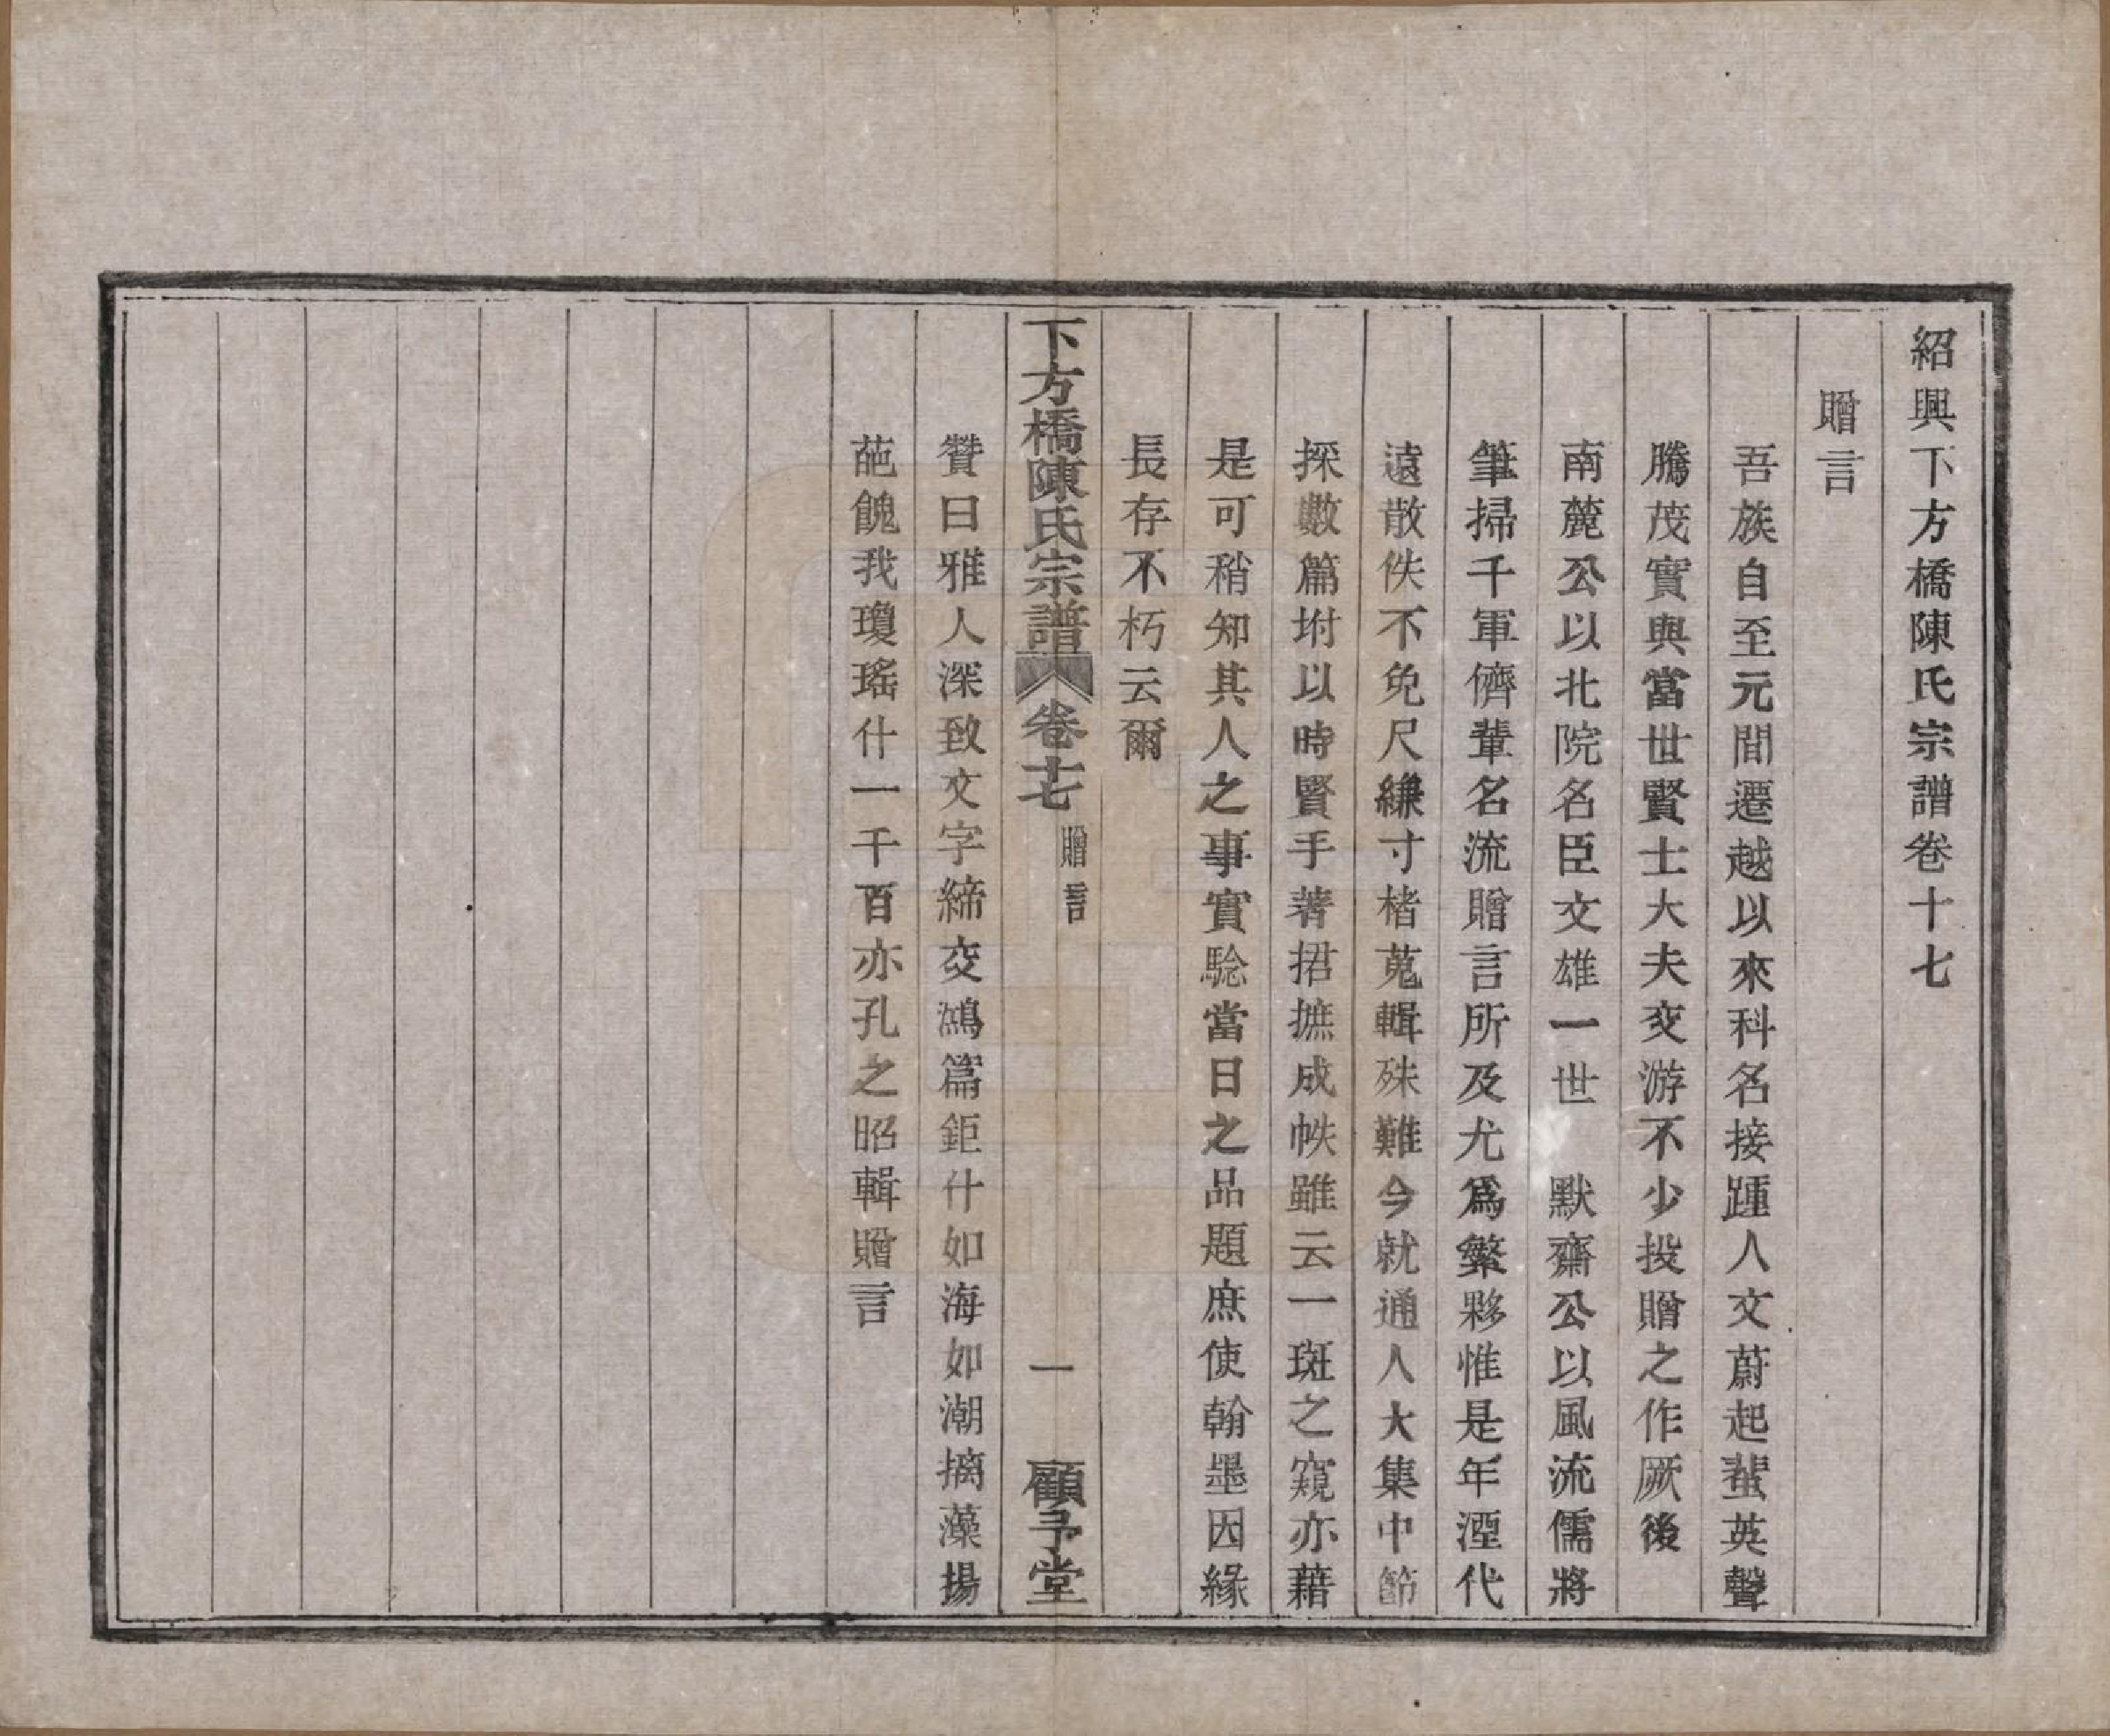 紹興下方橋陳氏宗譜卷十七
贈言
吾族自至元間遷越以來科名接踵人文蔚起蜚英聲
騰茂實與當世賢士大夫交游不少投贈之作厥後
南麓公以北院名臣文雄一世　默齋公以風流儒將
筆掃千軍儕輩名流贈言所及尤爲繁夥惟是年湮代
遠散佚不免尺縑寸楮蒐輯殊難今就通人大集中節
採數篇坿以時賢手著捃摭成帙雖云一斑之窺亦藉
是可稍知其人之事實驗當日之品題庶使翰墨因緣
長存不朽云爾
下方橋陳氏宗譜　卷十七　贈言　一　顧予堂
贊曰雅人深致文字締交鴻篇鉅什如海如潮摛藻揚
葩餽我瓊瑤什一千百亦孔之昭輯贈言